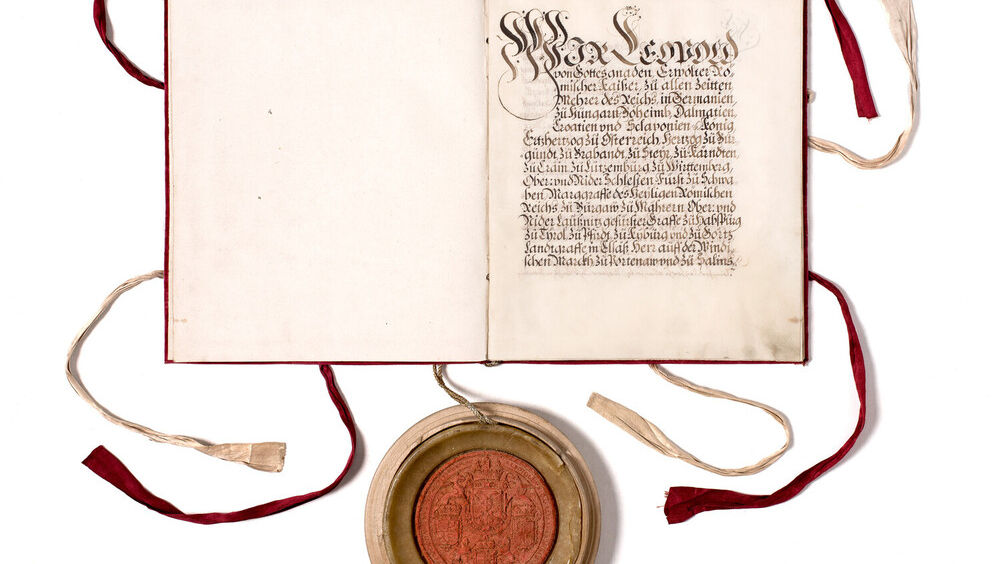 Wir Leopold
von Gottes gnaden, Erwölter Rö-
mischer Kaiser, zu allen Zeitten
Mehrer des Reichs, in Germanien,
zu Hungarn, Böheimb, Dalmatien,
Croatien vnd Sclavonien, König,
Ertzhertzog zu Österreich, Hertzog zu Bur-
gundt, zu Brabandt, zu Steyr, zu Kärndten,
zu Crain, zu Lützemburg, zu Württemberg,
Ober: vnd Nider Schlesien, Fürst zu Schwa-
ben, Marggraffe des Heyligen Römischen
Reichs, zu Burgaw, zu Mährern, Ober: vnd
Nider Laußnitz, gefürster Graffe zu Habspürg
zu Tyrol, zu Pfirdt, zu Kyburg, vnd zu Görtz,
Landtgraffe in Elsaß, Herr auff der Windi-
schen Marckh, zu Portenaw vnd zu Salins,